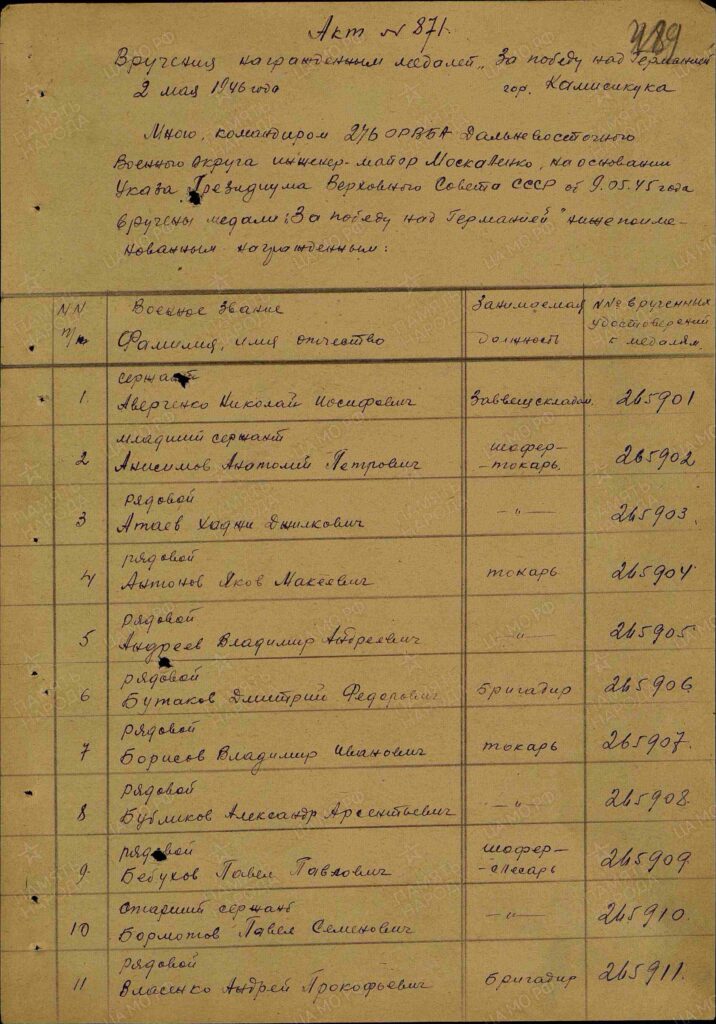 Акт № 871.
489
Вручения награжденным медалей „За победу над Германией
2 мая 1946 года гор. Камисикука
Мною, командиром 276 ОРВБА Дальневосточного
Военного Округа инженер-майор Москаленко, на основании
Указа Президиума Верховного Совета СССР от 9.05.45 года
вручены медали „За победу над Германией" нижепоиме-
нованным награжденным:
NN п/п
Военное звание
Фамилия, имя отчество
Занимаемая
должность
NNо врученных
удостоверений
к медалям.
1. сержант
Аверченко Николай Иосифович Заввещскладом. 265901
2 младший сержант
Анисимов Анатолий Петрович шофер-
-токарь. 265902
3 рядовой
Атаев Хаджи Джилкович -"- 265903.
4 рядовой
Антонов Яков Макеевич токарь 265904
5 рядовой
Андреев Владимир Андреевич -"- 265905
6 рядовой
Бутаков Дмитрий Федорович Бригадир 265906
7 рядовой
Борисов Владимир Иванович токарь 265907.
8 рядовой
Бубликов Александр Арсентьевич -"- 265908
9. рядовой
Бебухов Павел Павлович шофер-
-слесарь 265909
10 старший сержант
Бормотов Павел Семенович -"- 265910.
11 рядовой
Власенко Андрей Прокофьевич Бригадир 265911.